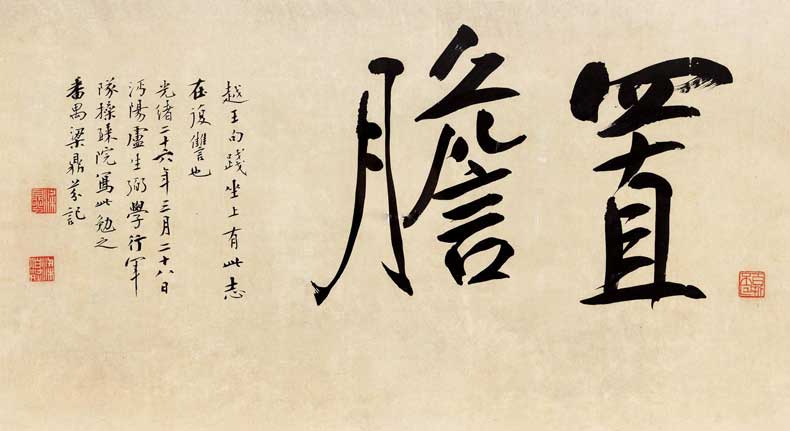 置膽
越王句踐坐上有此志
在復讐也
光緒二十六年三月二十八日
沔陽盧生弼學行軍
隊操練院寫此勉之
番禺梁鼎芬記